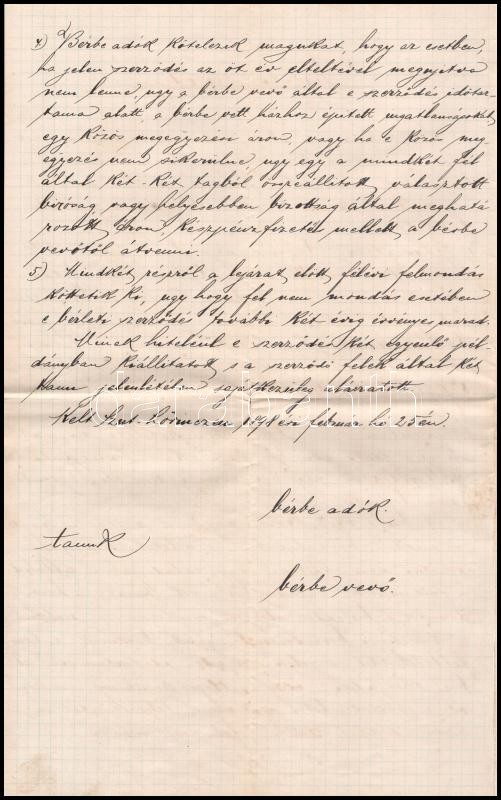 4) Bérbe adók kötelezik magukat, hogy az esetben,
ha jelen szerződés az öt év elteltével megnyitva
nem lenne, ugy a bérbe vevő által e szerződés időtar-
tama alatt, a bérbe vett házhoz épített ingatlanságokat
egy közös megegyezési áron, vagy ha e közös meg-
egyezés nem sikerülne, ugy egy a mindkét fél
által két-két tagból összeállított választott
biróság vagy helyesebben bizottság által meghatá
rozott áron, készpénzfizetés mellett a bérbe
vevőtől átvenni.
5) Mindkét részről a lejárat előtt félévi felmondás
köttetik ki, ugy hogy fel nem mondás esetében
e bérleti szerződés további két évig érvényes marad.
Minek hiteléül e szerződés két egyenlő pél-
dányban kiállitatott s a szerződő felek által két
tanu jelenlétében sajátkezüleg aláíratott.
Kelt Szent- 1898 évi február hó 25-én.
bérbe adók.
tanuk
bérbe vevő.